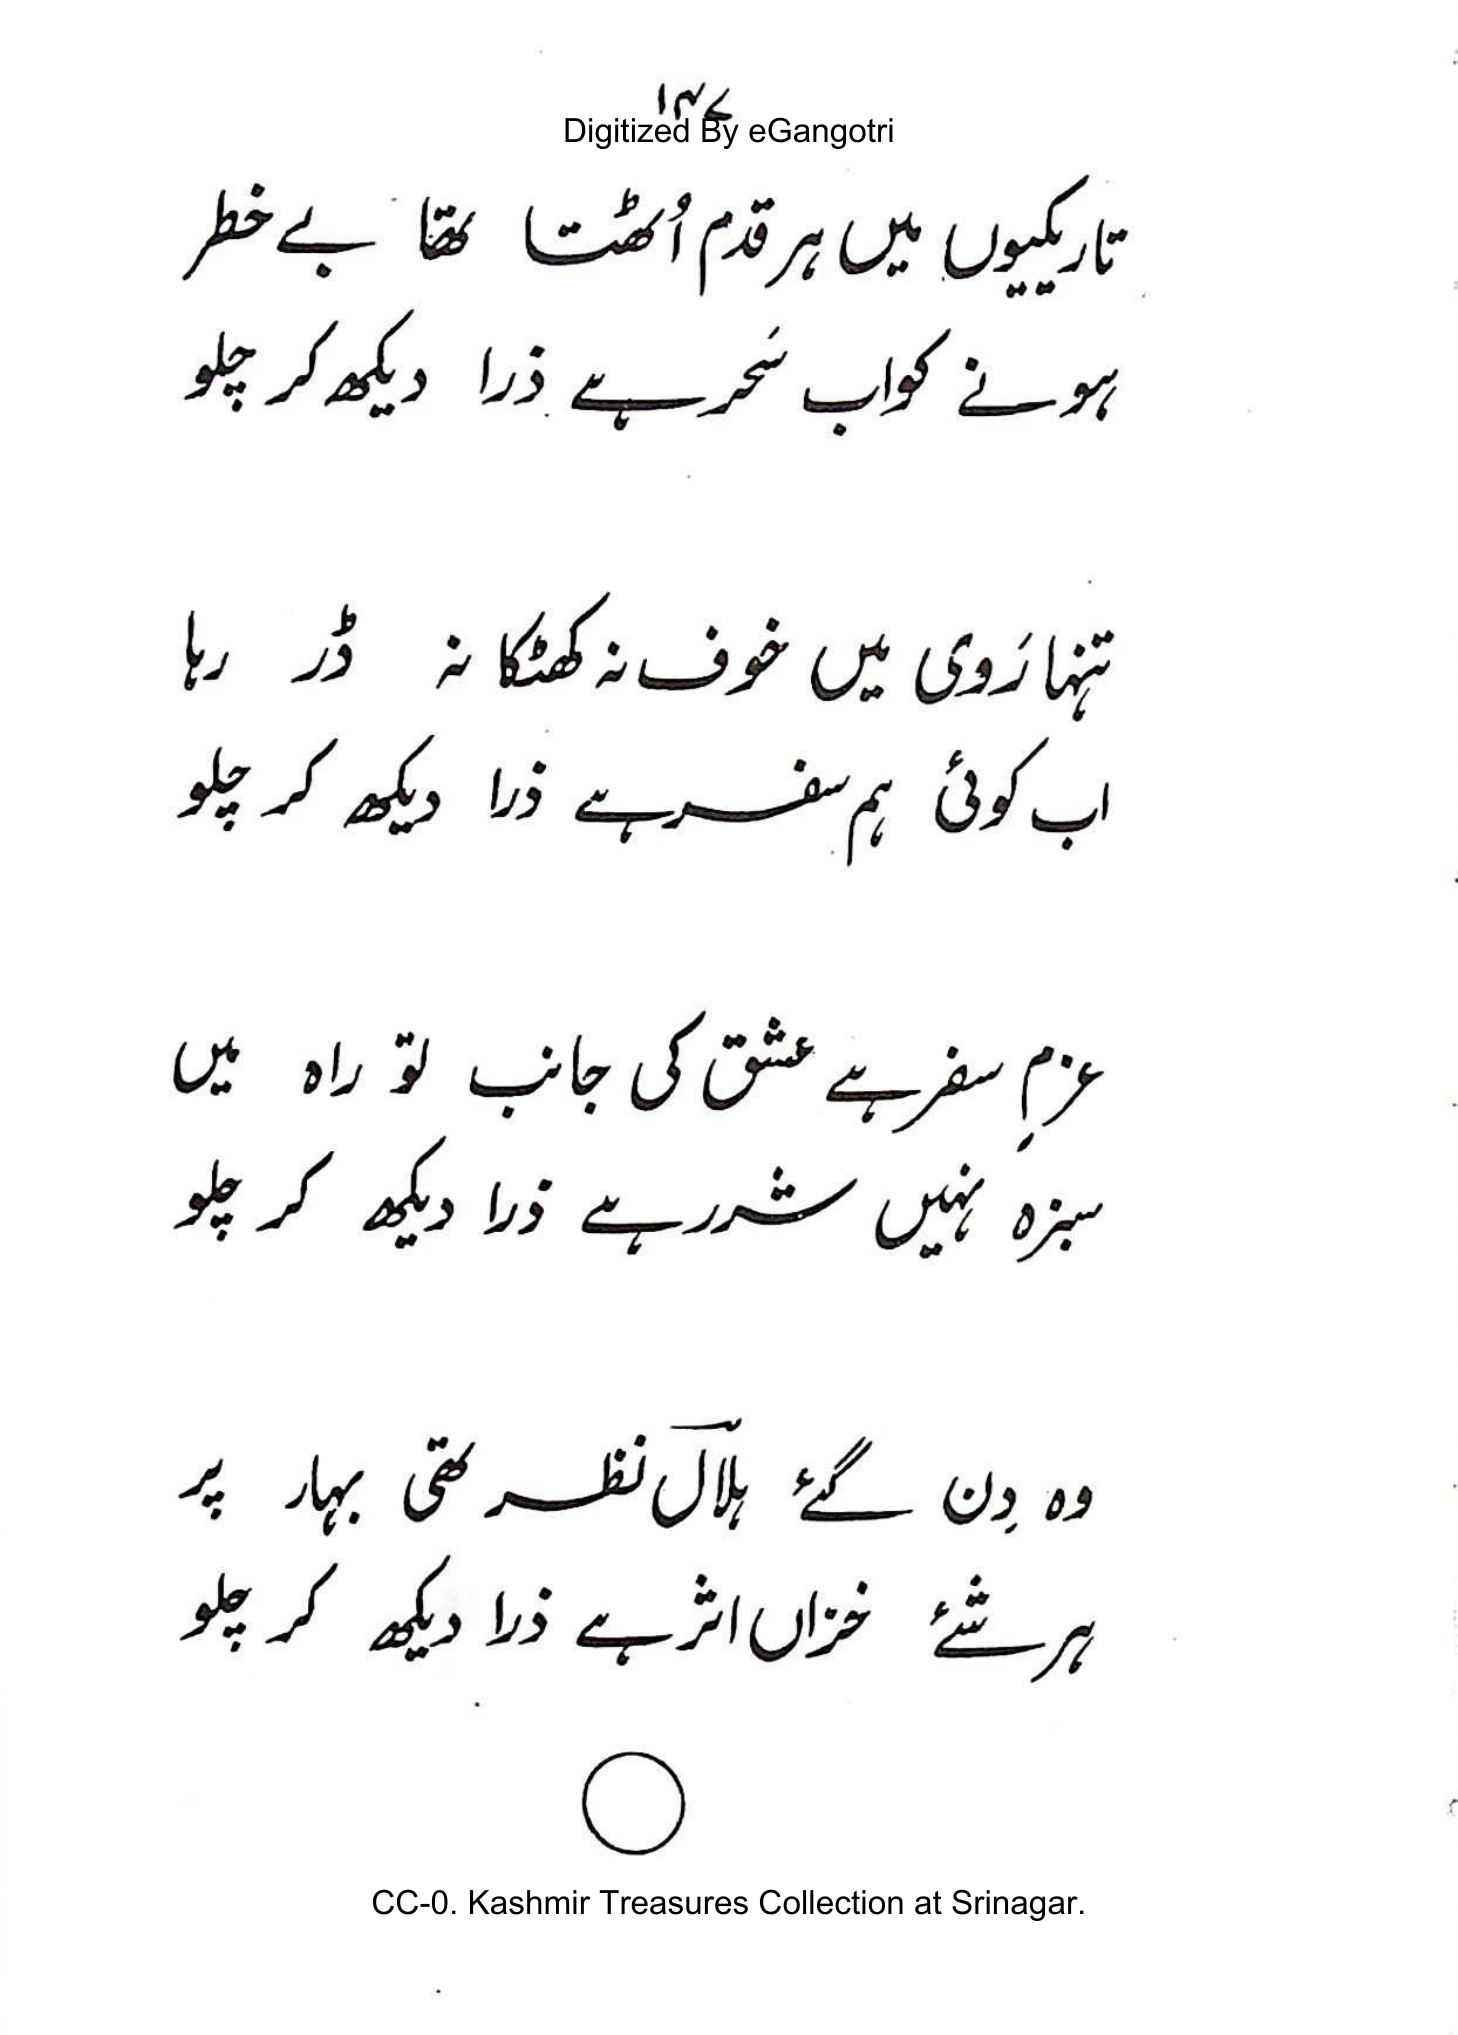 ۱۴۷
Digitized By eGangotri
تاریکیوں میں ہر قدم اُٹھتا تھا بے خطر
ہونے کو اب سَحر ہے ذرا دیکھ کر چلو
تنہا رَوی میں خوف نہ کھٹکا نہ ڈر رہا
اب کوئی ہم سفر ہے ذرا دیکھ کر چلو
عزمِ سفر ہے عشق کی جانب تو راہ میں
سبزہ نہیں شرر ہے ذرا دیکھ کر چلو
وہ دِن گئے ہلالؔ نظر تھی بہار پر
ہر شئے خزاں اثر ہے ذرا دیکھ کر چلو
CC-0. Kashmir Treasures Collection at Srinagar.